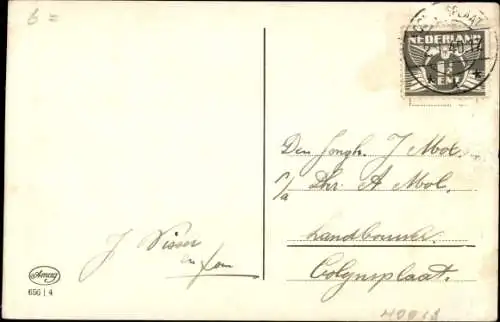 6 =
NEDERLAND
CENT
Den Jongh. J Mol.
c/a Dhr. A Mol.
Landbouwer.
Colynsplaat.
J Visser
en fam
Amag
656 | 4